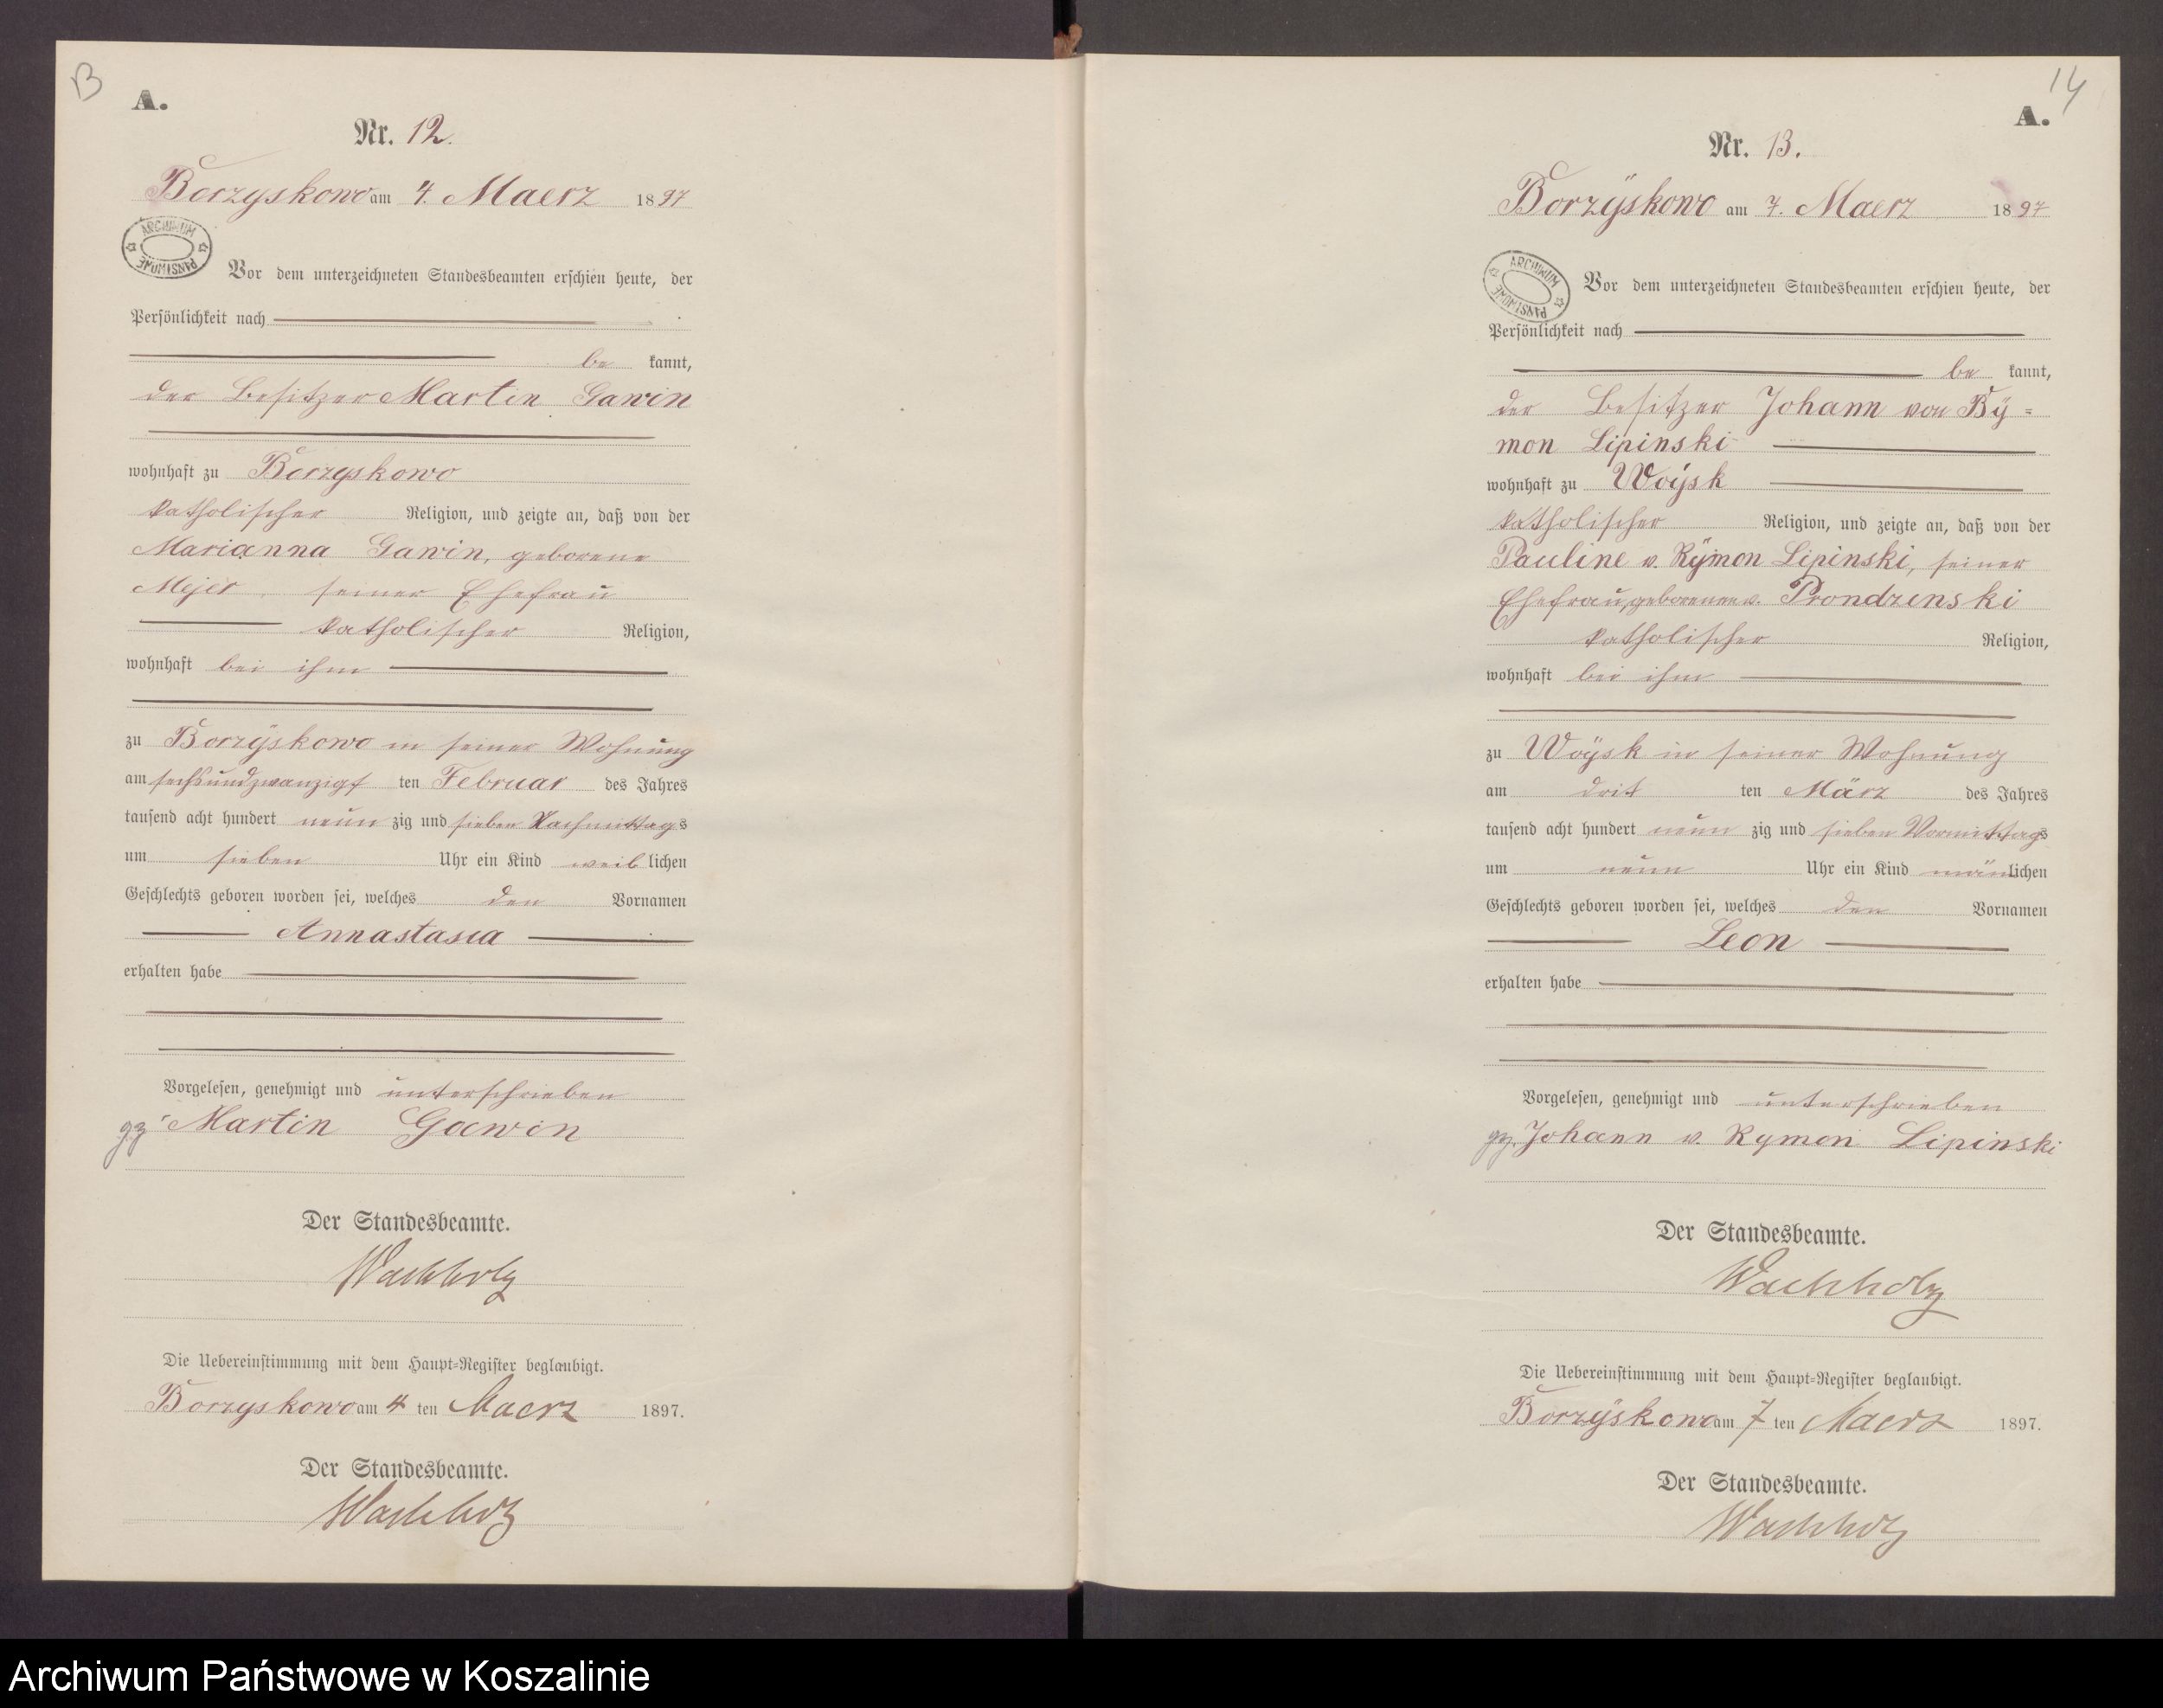 13
A.
Nr. 12.
Borzyskowo am 4. Maerz 1897
ARCHIWUM PAŃSTWOWE
Vor dem unterzeichneten Standesbeamten erschien heute, der
Persönlichkeit nach
be kannt,
der Besitzer Martin Gawin
wohnhaft zu Borzyskowo
katholischer Religion, und zeigte an, daß von der
Marianna Gawin, geborene
Mejer, seiner Ehefrau
katholischer Religion,
wohnhaft bei ihm
zu Borzÿskowo in seiner Wohnung
am sechsundzwanzigs ten Februar des Jahres
tausend acht hundert neun zig und sieben Nachmittags
um sieben Uhr ein Kind weib lichen
Geschlechts geboren worden sei, welches den Vornamen
Annastasia
erhalten habe
Vorgelesen, genehmigt und unterschrieben
gz Martin Gawin
Der Standesbeamte.
Wachholz
Die Uebereinstimmung mit dem Haupt=Register beglaubigt.
Borzyskowo am 4 ten Maerz 1897.
Der Standesbeamte.
Wachholz
14
A.
Nr. 13.
Borzÿskowo am 7. Maerz 1897
ARCHIWUM PAŃSTWOWE
Vor dem unterzeichneten Standesbeamten erschien heute, der
Persönlichkeit nach
be kannt,
der Besitzer Johann von Rÿ=
mon Lipinski
wohnhaft zu Woÿsk
katholischer Religion, und zeigte an, daß von der
Pauline v. Rÿmon Lipinski, seiner
Ehefrau, geborenen v. Prondzenski
katholischer Religion,
wohnhaft bei ihm
zu Woÿsk in seiner Wohnung
am drit ten März des Jahres
tausend acht hundert neun zig und sieben Vormittags
um neun Uhr ein Kind män lichen
Geschlechts geboren worden sei, welches den Vornamen
Leon
erhalten habe
Vorgelesen, genehmigt und unterschrieben
gz. Johann v. Rymon Lipinski
Der Standesbeamte.
Wachholz
Die Uebereinstimmung mit dem Haupt=Register beglaubigt.
Borzÿskowo am 7 ten Maerz 1897.
Der Standesbeamte.
Wachholz
Archiwum Państwowe w Koszalinie